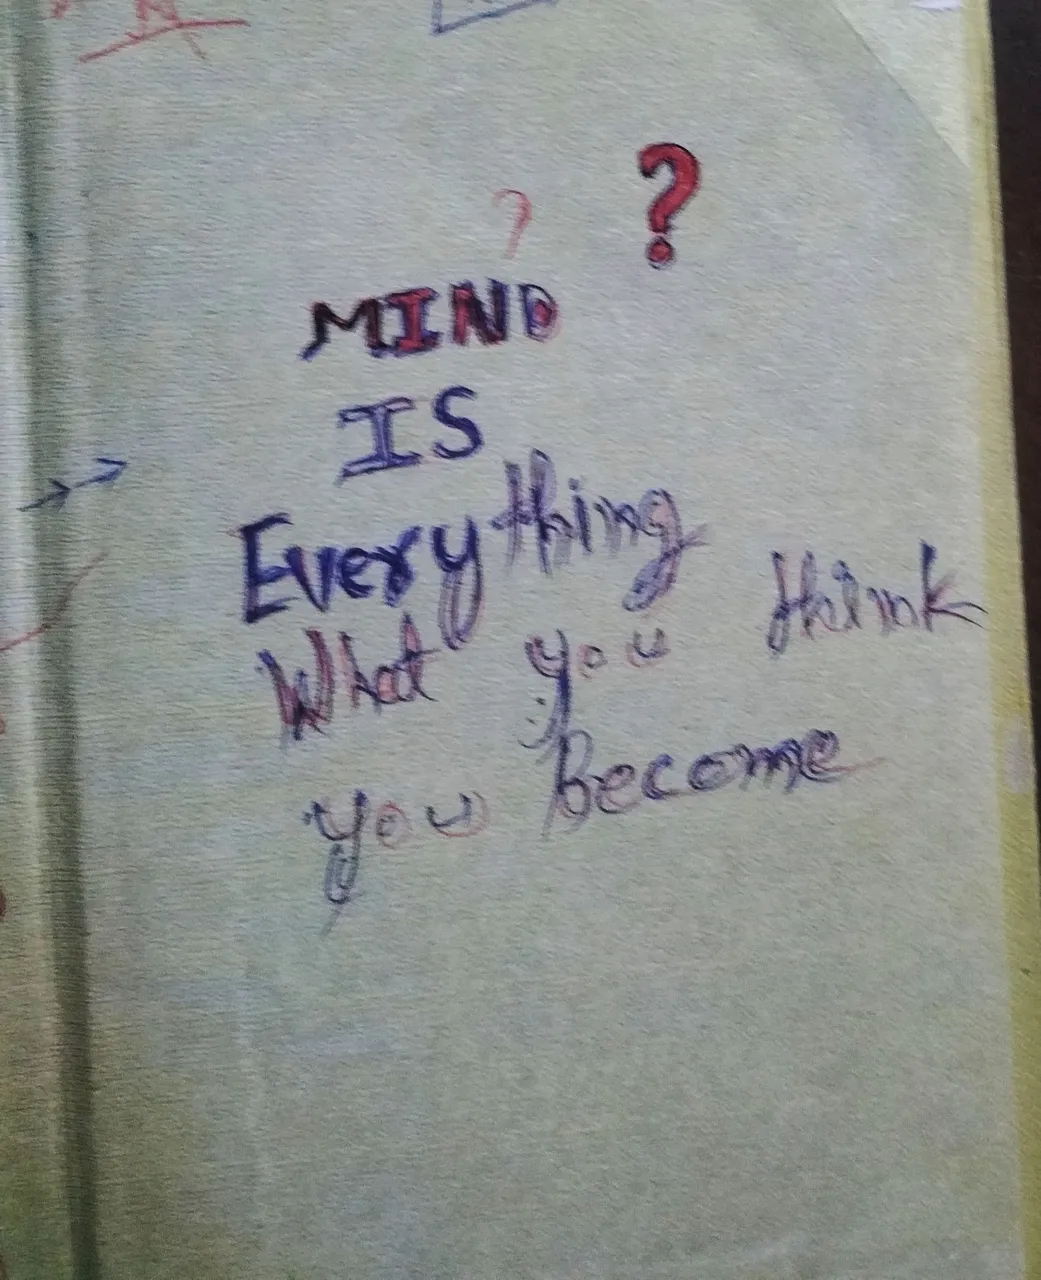 ?
?
MIND
IS
Everything
What you think
you Become